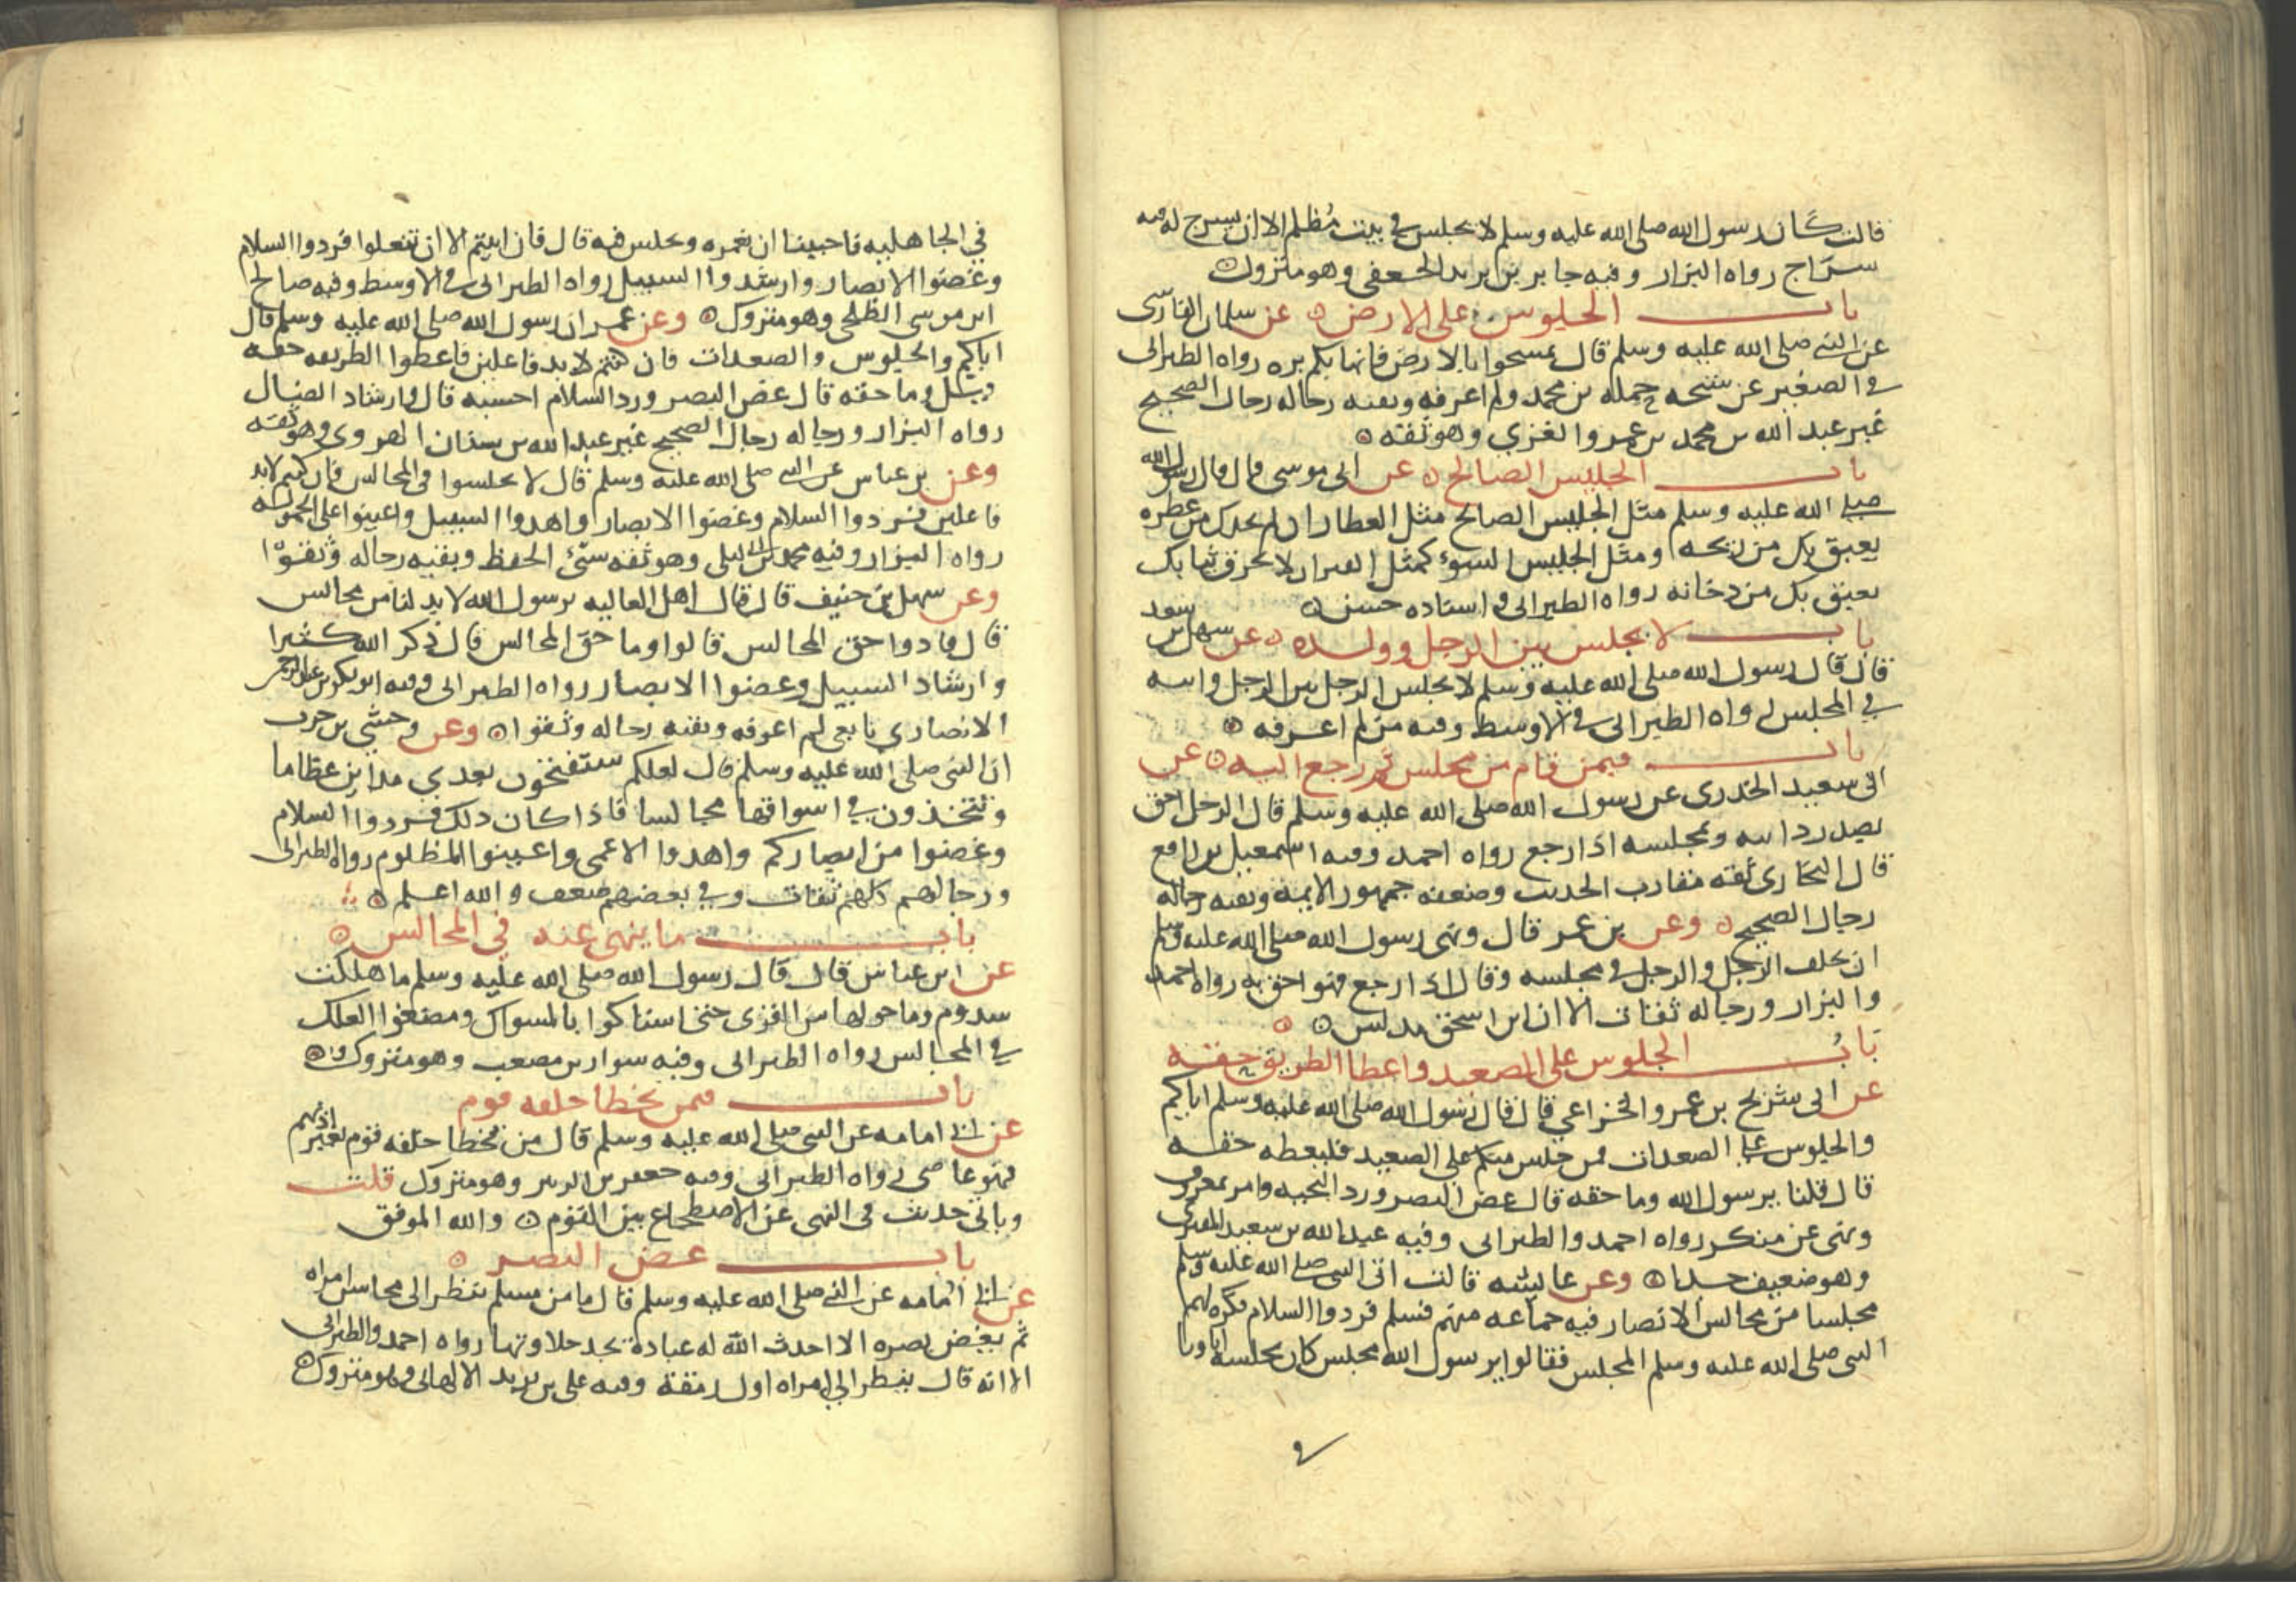 قالت كان رسول الله صلى الله عليه وسلم لا يجلس في بيت مظلم الا ان يسرج له فيه
سراج رواه البزار وفيه جابر بن يزيد الجعفي وهو متروك
باب الجلوس على الارض عن سلمان الفارسي
عن النبي صلى الله عليه وسلم قال تمسحوا بالارض فانها بكم بره رواه الطبراني
في الصغير عن شيخه جملة بن محمد ولم اعرفه وبقيه رجاله رجال الصحيح
غير عبد الله بن محمد بن عمرو الغزي وهو ثقه
باب الجليس الصالح عن ابي موسى قال قال رسول الله
صلى الله عليه وسلم مثل الجليس الصالح مثل العطار ان لم يحدك من عطره
يعبق بك من ريحه ومثل الجليس السوء كمثل القين ان لا يحرق ثيابك
يعبق بك من دخانه رواه الطبراني واسناده حسن
باب لا يجلس بين الرجل وولده عن سهل بن سعد
قال قال رسول الله صلى الله عليه وسلم لا يجلس الرجل بين الرجل وابنه
في المجلس رواه الطبراني في الاوسط وفيه من لم اعرفه
باب فيمن قام من مجلس ثم رجع اليه عن
ابي سعيد الخدري عن رسول الله صلى الله عليه وسلم قال الرجل احق
بصدر دابته وبمجلسه اذا رجع رواه احمد وفيه اسمعيل بن رافع
قال البخاري ثقه مقارب الحديث وضعفه جمهور الايمه وبقيه رجاله
رجال الصحيح وعن بن عمر قال ونهى رسول الله صلى الله عليه وسلم
ان يخلف الرجل والرجل في مجلسه وقال اذا رجع فهو احق به رواه احمد
والبزار ورجاله ثقات الا ان ابن اسحق مدلس
باب الجلوس على الصعيد واعطا الطريق حقه
عن ابي شريح بن عمرو الخزاعي قال قال رسول الله صلى الله عليه وسلم اياكم
والجلوس على الصعدات فمن جلس منكم على الصعيد فليعطه حقه
قال قلنا يرسول الله وما حقه قال غض البصر ورد التحيه وامر بمعروف
ونهى عن منكر رواه احمد والطبراني وفيه عبد الله بن سعيد المقبري
وهو ضعيف جدا وعن عايشه قالت اتى النبي صلى الله عليه وسلم
مجلسا من مجالس الانصار فيه جماعه منهم فسلم فردوا السلام فكره لهم
النبي صلى الله عليه وسلم المجلس فقالوا يرسول الله مجلس كان يجلسه اباونا
في
في الجاهليه فاحببنا ان نعمره ونجلس فيه قال فان ابيتم الا ان تفعلوا فردوا السلام
وغضوا الابصار وارشدوا السبيل رواه الطبراني في الاوسط وفيه صالح
ابن موسى الطلحي وهو متروك وعن عمر ان رسول الله صلى الله عليه وسلم قال
اياكم والجلوس والصعدات فان كنتم لا بد فاعلين فاعطوا الطريق حقه
قيل وما حقه قال غض البصر ورد السلام احسبه قال وارشاد الضال
رواه البزار ورجاله رجال الصحيح غير عبد الله بن سنان الهروي وهو ثقه
وعن بن عباس عن النبي صلى الله عليه وسلم قال لا تجلسوا في المجالس فان كنتم لا بد
فاعلين فردوا السلام وغضوا الابصار واهدوا السبيل واعينوا على الحموله
رواه البزار وفيه محمد بن ابي ليلى وهو ثقه سيئ الحفظ وبقيه رجاله وثقوا
وعن سهل بن حنيف قال قال اهل العاليه يرسول الله لا بد لنا من مجالس
قال فادوا حق المجالس قالوا وما حق المجالس قال ذكر الله كثيرا
وارشاد السبيل وغضوا الابصار رواه الطبراني وفيه ابو بكر بن عبد الرحمن
الانصاري تابعي لم اعرفه وبقيه رجاله وثقوا وعن وحشي بن حرب
ان النبي صلى الله عليه وسلم قال لعلكم ستفتحون بعدي مداين عظاما
وتتخذون في اسواقها مجالسا فاذا كان ذلك فردوا السلام
وغضوا من ابصاركم واهدوا الاعمى واعينوا المظلوم رواه الطبراني
ورجالهم كلهم ثقات وفي بعضهم ضعف والله اعلم
باب ما ينهى عنه في المجالس
عن ابن عباس قال قال رسول الله صلى الله عليه وسلم ما هلكت
سدوم وما حولها من القرى حتى استاكوا بالمسواك ومضغوا العلك
في المجالس رواه الطبراني وفيه سوار بن مصعب وهو متروك
باب فيمن يخطا حلقه قوم
عن ابي امامه عن النبي صلى الله عليه وسلم قال من تخطا حلقه قوم بغير اذنهم
فهو عاصي رواه الطبراني وفيه جعفر بن الزبير وهو متروك قلت
وياتي حديث في النهي عن الاضطجاع بين القوم والله الموفق
باب غض البصر
عن ابي امامه عن النبي صلى الله عليه وسلم قال ما من مسلم ينظر الى محاسن امراه
ثم يغض بصره الا احدث الله له عبادة يجد حلاوتها رواه احمد والطبراني
الا انه قال ينظر الى امراه اول رمقة وفيه علي بن يزيد الالهاني وهو متروك